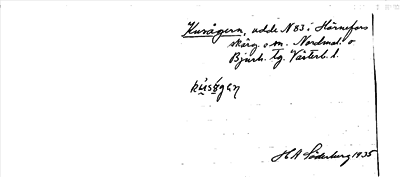 Kusågern, udde N 83 i Hörnefors
skärg. o m. Nordmal. o
Bjurh. tg. Västerb. l.
H A Söderberg 1935